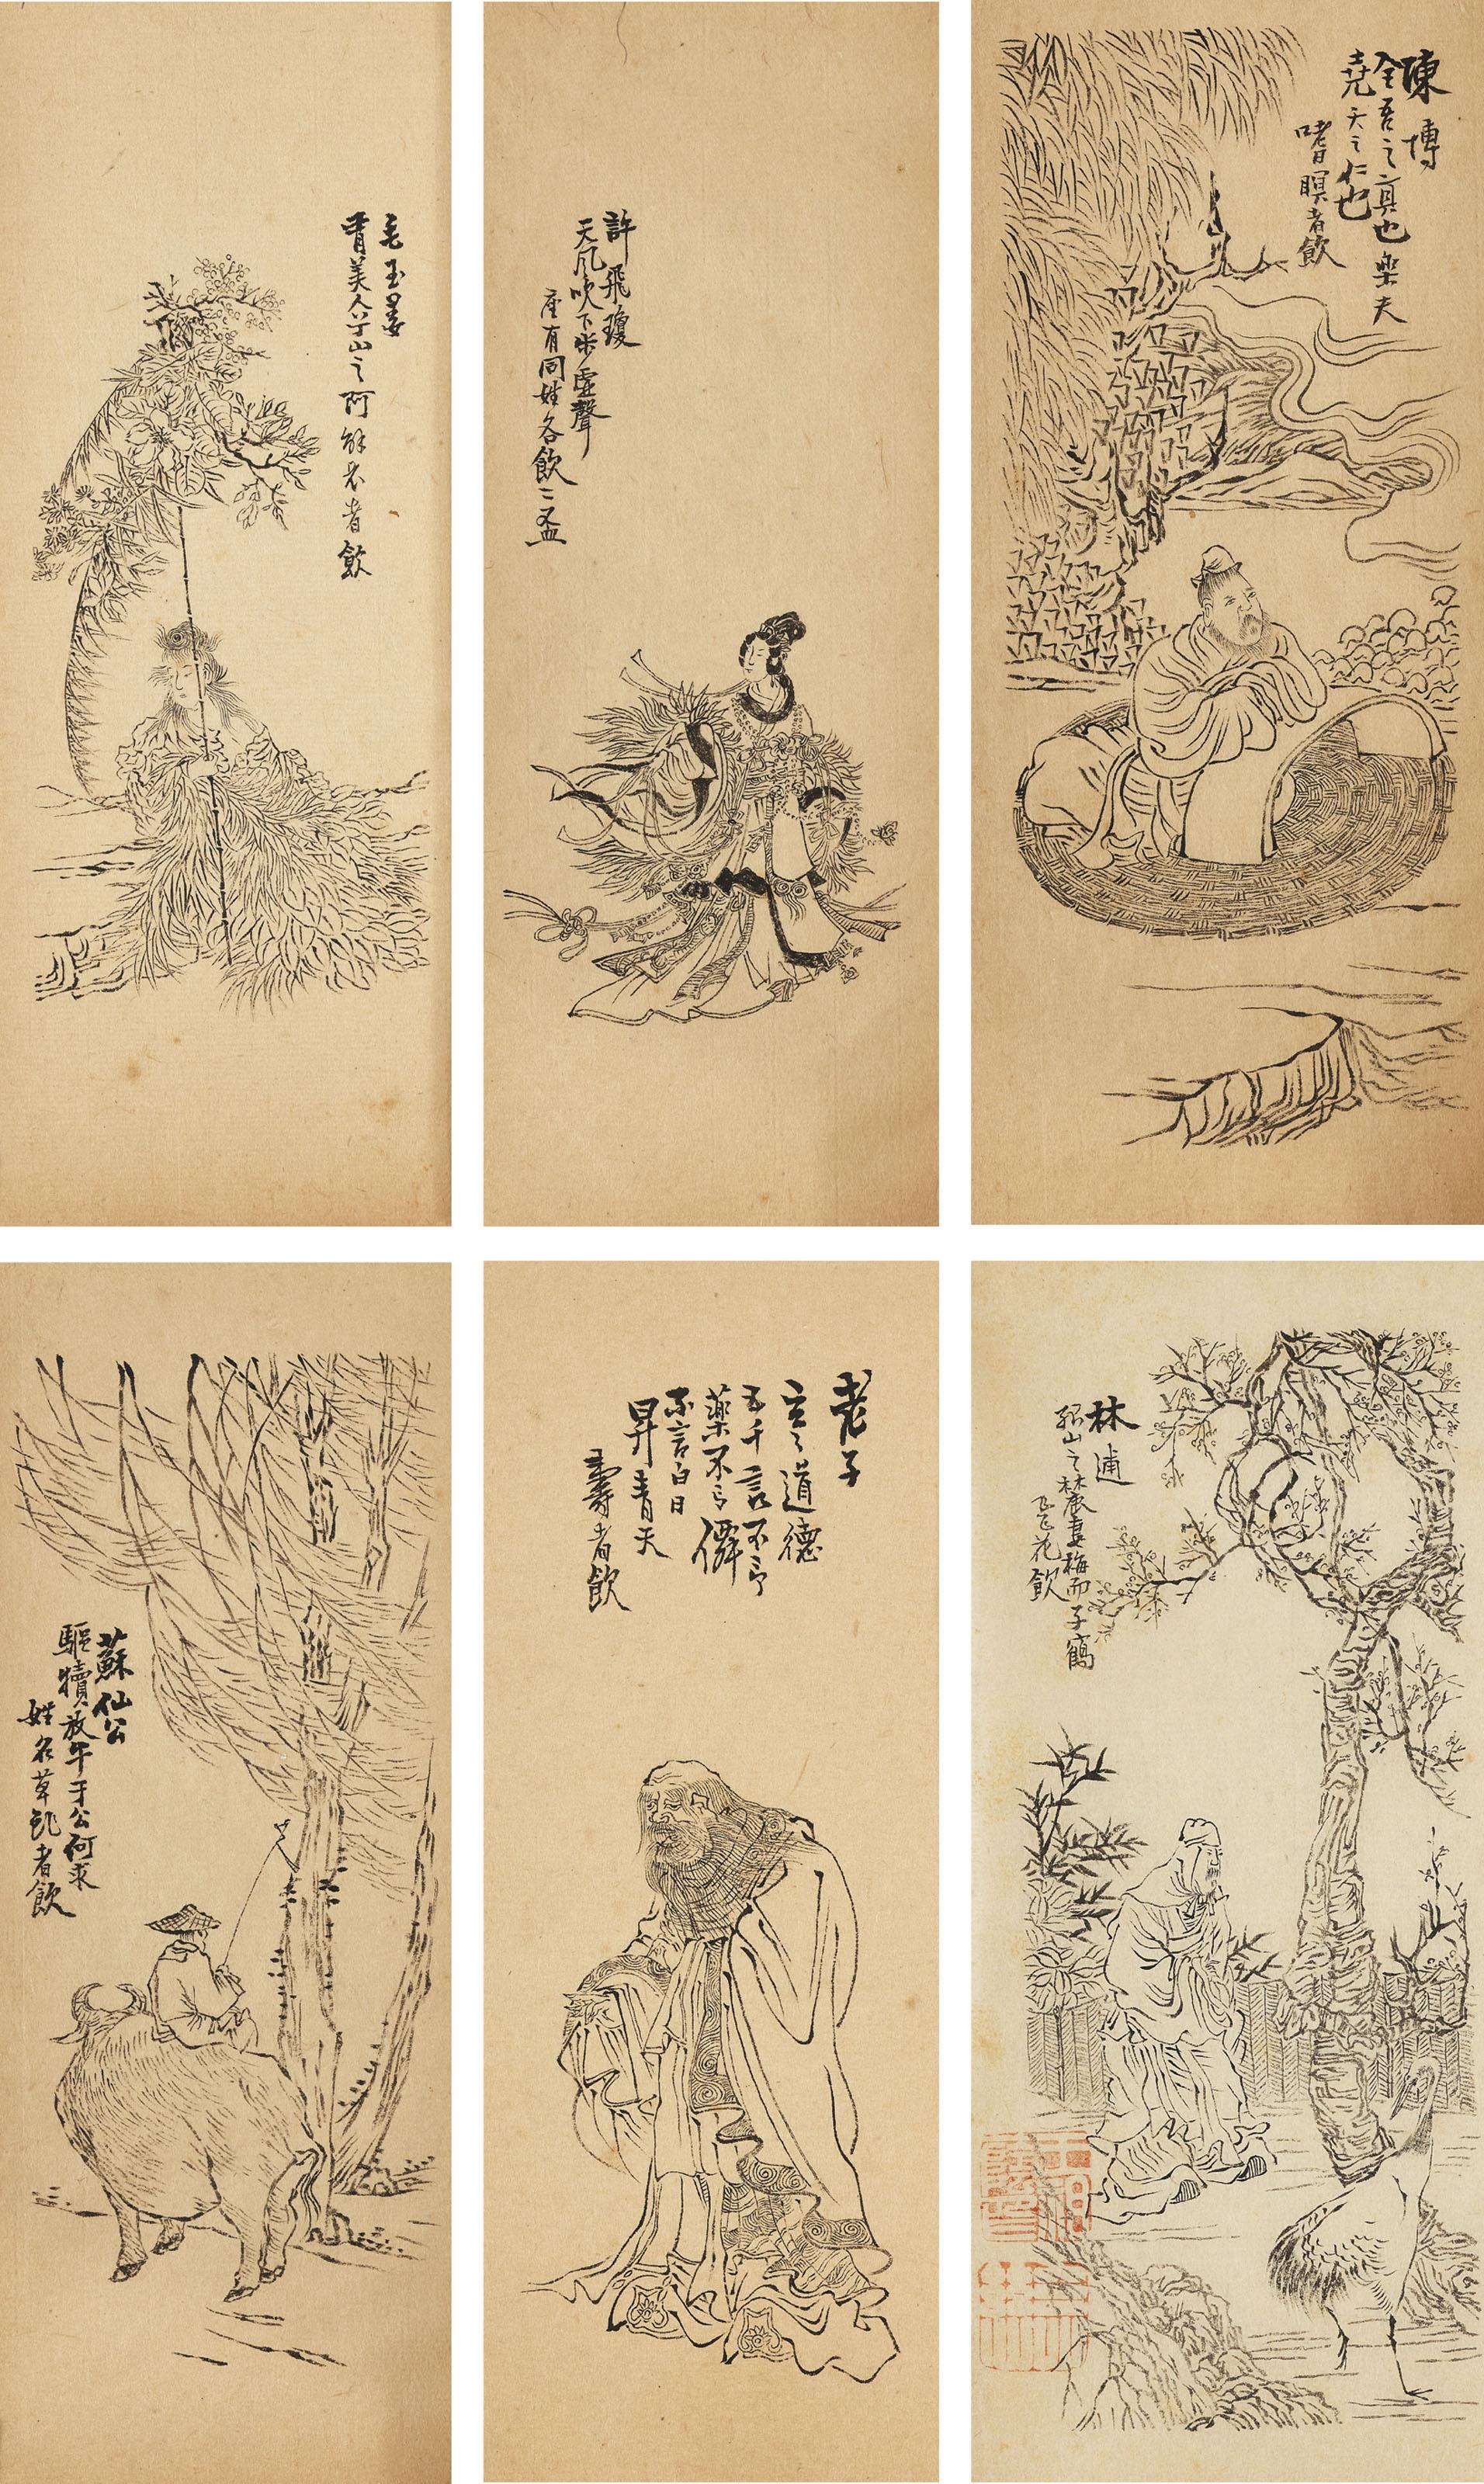 陳摶
全吾之真也樂夫
堯天之仁也
嗜瞑者飲
許飛瓊
天風吹下步虛聲
座有同姓各飲二盃
毛玉姜
有美人兮山之阿 解衣者飲
林逋
孤山之麓妻梅而子鶴
飛花飲
老子
玄〻道德
五千言不言
藥不言僊
不言白日
昇青天
壽者飲
蘇仙公
驅犢放牛于公何求
姓名草頭者飲